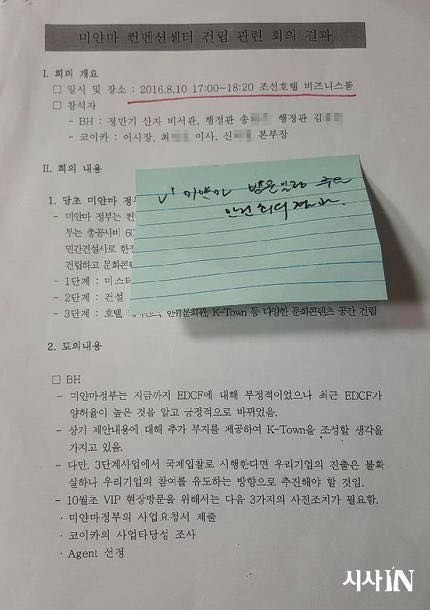 미얀마 컨벤션센터 건립 관련 회의 결과
I. 회의 개요
□ 일시 및 장소 : 2016.8.10 17:00~18:20 조선호텔 비즈니스룸
□ 참석자
- BH : 정만기 산자 비서관, 행정관 송 행정관 김
- 코이카 : 이사장, 최 이사, 신 본부장
II. 회의 내용
1. 당초 미얀마 정
- 미얀마 정부는 컨
부는 총공사비 60
민간건설사로 한정
건립하고 문화콘텐
- 1단계 : 미스터
- 2단계 : 건설
- 3단계 : 호텔, 한류문화관, K-Town 등 다양한 문화콘텐츠 공간 건립
미얀마 방문일정
2. 토의내용
□ BH
- 미얀마정부는 지금까지 EDCF에 대해 부정적이었으나 최근 EDCF가
양허율이 높은 것을 알고 긍정적으로 바뀌었음.
- 상기 제안내용에 대해 추가 부지를 제공하여 K-Town을 조성할 생각을
가지고 있음.
- 다만, 3단계사업에서 국제입찰로 시행한다면 우리기업의 진출은 불확
실하나 우리기업의 참여를 유도하는 방향으로 추진해야 할 것임.
- 10월조 VIP 현장방문을 위해서는 다음 3가지의 사전조치가 필요함.
· 미얀마정부의 사업요청서 제출
· 코이카의 사업타당성 조사
· Agent 선정
시사IN